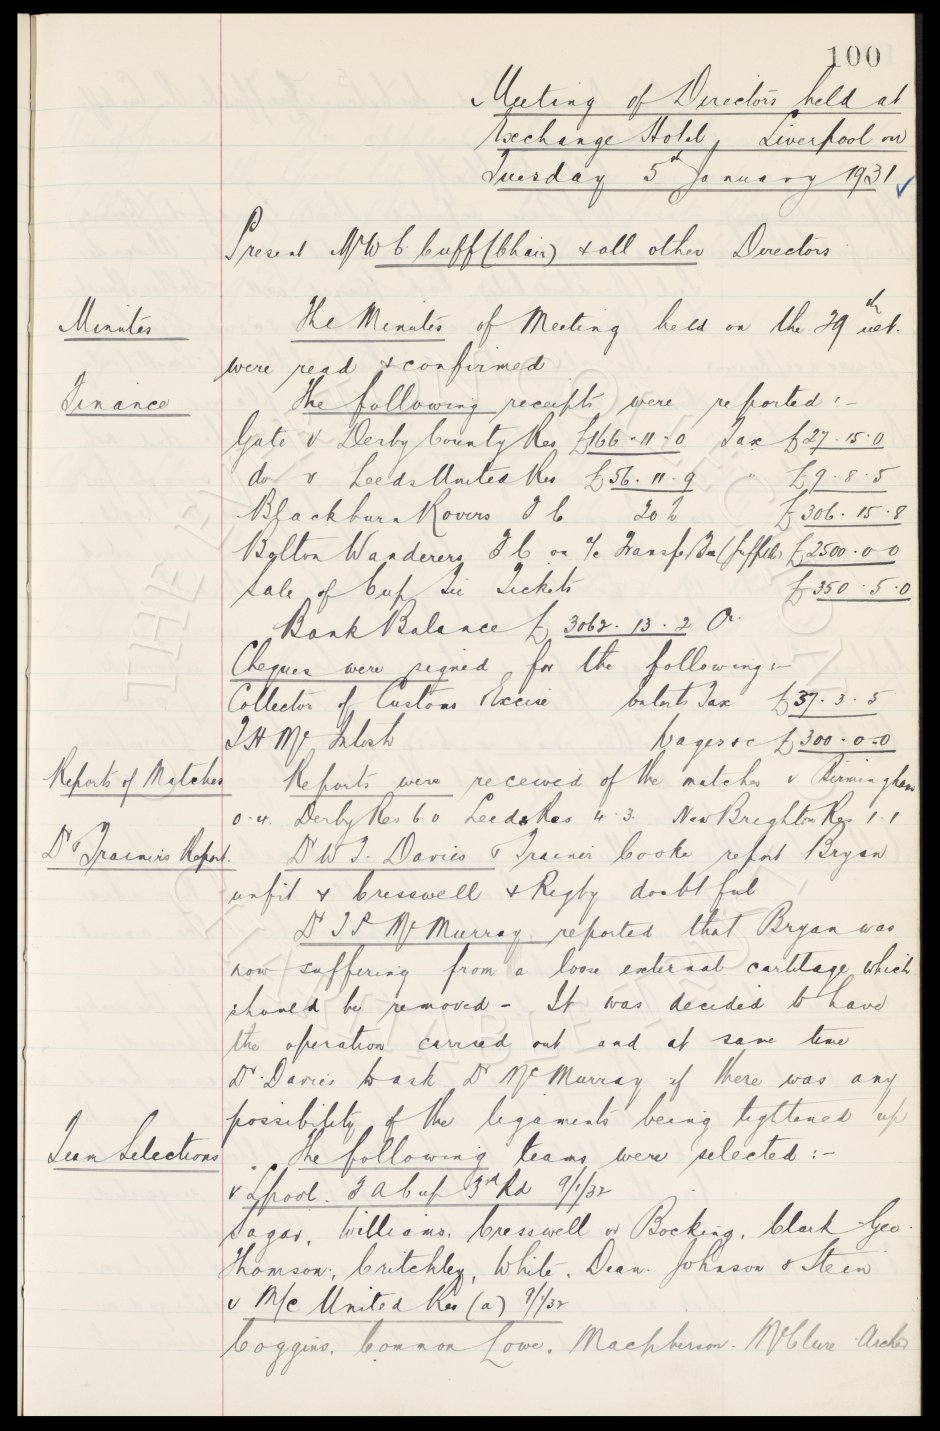 100
Meeting of Directors held at
Exchange Hotel, Liverpool on
Tuesday 5th January 1931
Present Mr W C Cuff (Chair) & all other Directors
Minutes The Minutes of Meeting held on the 29th ult.
were read & confirmed
Finance The following receipts were reported :-
Gate v Derby County Res £166.11.0 Tax £27.15.0
do v Leeds United Res £56.11.9 " £9.8.5
Blackburn Rovers F C 20% £306.15.8
Bolton Wanderers F C on a/c Transfer £2500.0.0
Sale of Cup Tie Tickets £350.5.0
Bank Balance £3062.13.2 Cr.
Cheques were signed for the following :-
Collector of Customs Excise Entert Tax £37.3.5
T H McIntosh Wages &c £300.0.0
Reports of Matches Reports were received of the matches v Birmingham
0.4. Derby Res 6.0 Leeds Res 4.3. New Brighton Res 1.1
Dr & Trainers Report. Dr W T. Davies & Trainer Cooke report Bryan
unfit & Cresswell & Rigby doubtful
Dr T P McMurray reported that Bryan was
now suffering from a loose external cartilage which
should be removed - It was decided to have
the operation carried out and at same time
Dr. Davies to ask Dr McMurray if there was any
possibility of the ligaments being tightened up
Team Selections The following teams were selected :-
v Lpool. F A Cup 3rd Rd 9/1/32
Sagar, Williams, Cresswell or Bocking, Clark Geo.
Thomson, Critchley, White, Dean. Johnson & Stein
v M/c United Res (a) 9/1/32
Coggins, Common Lowe, Macpherson. McClure Archer